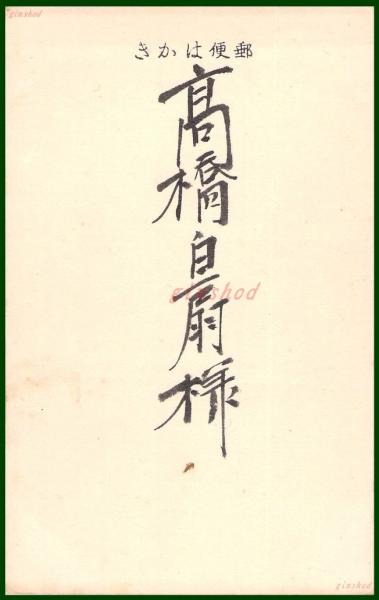 ginshod
きかは便郵
高橋皇尉様
ginshod
ginshod